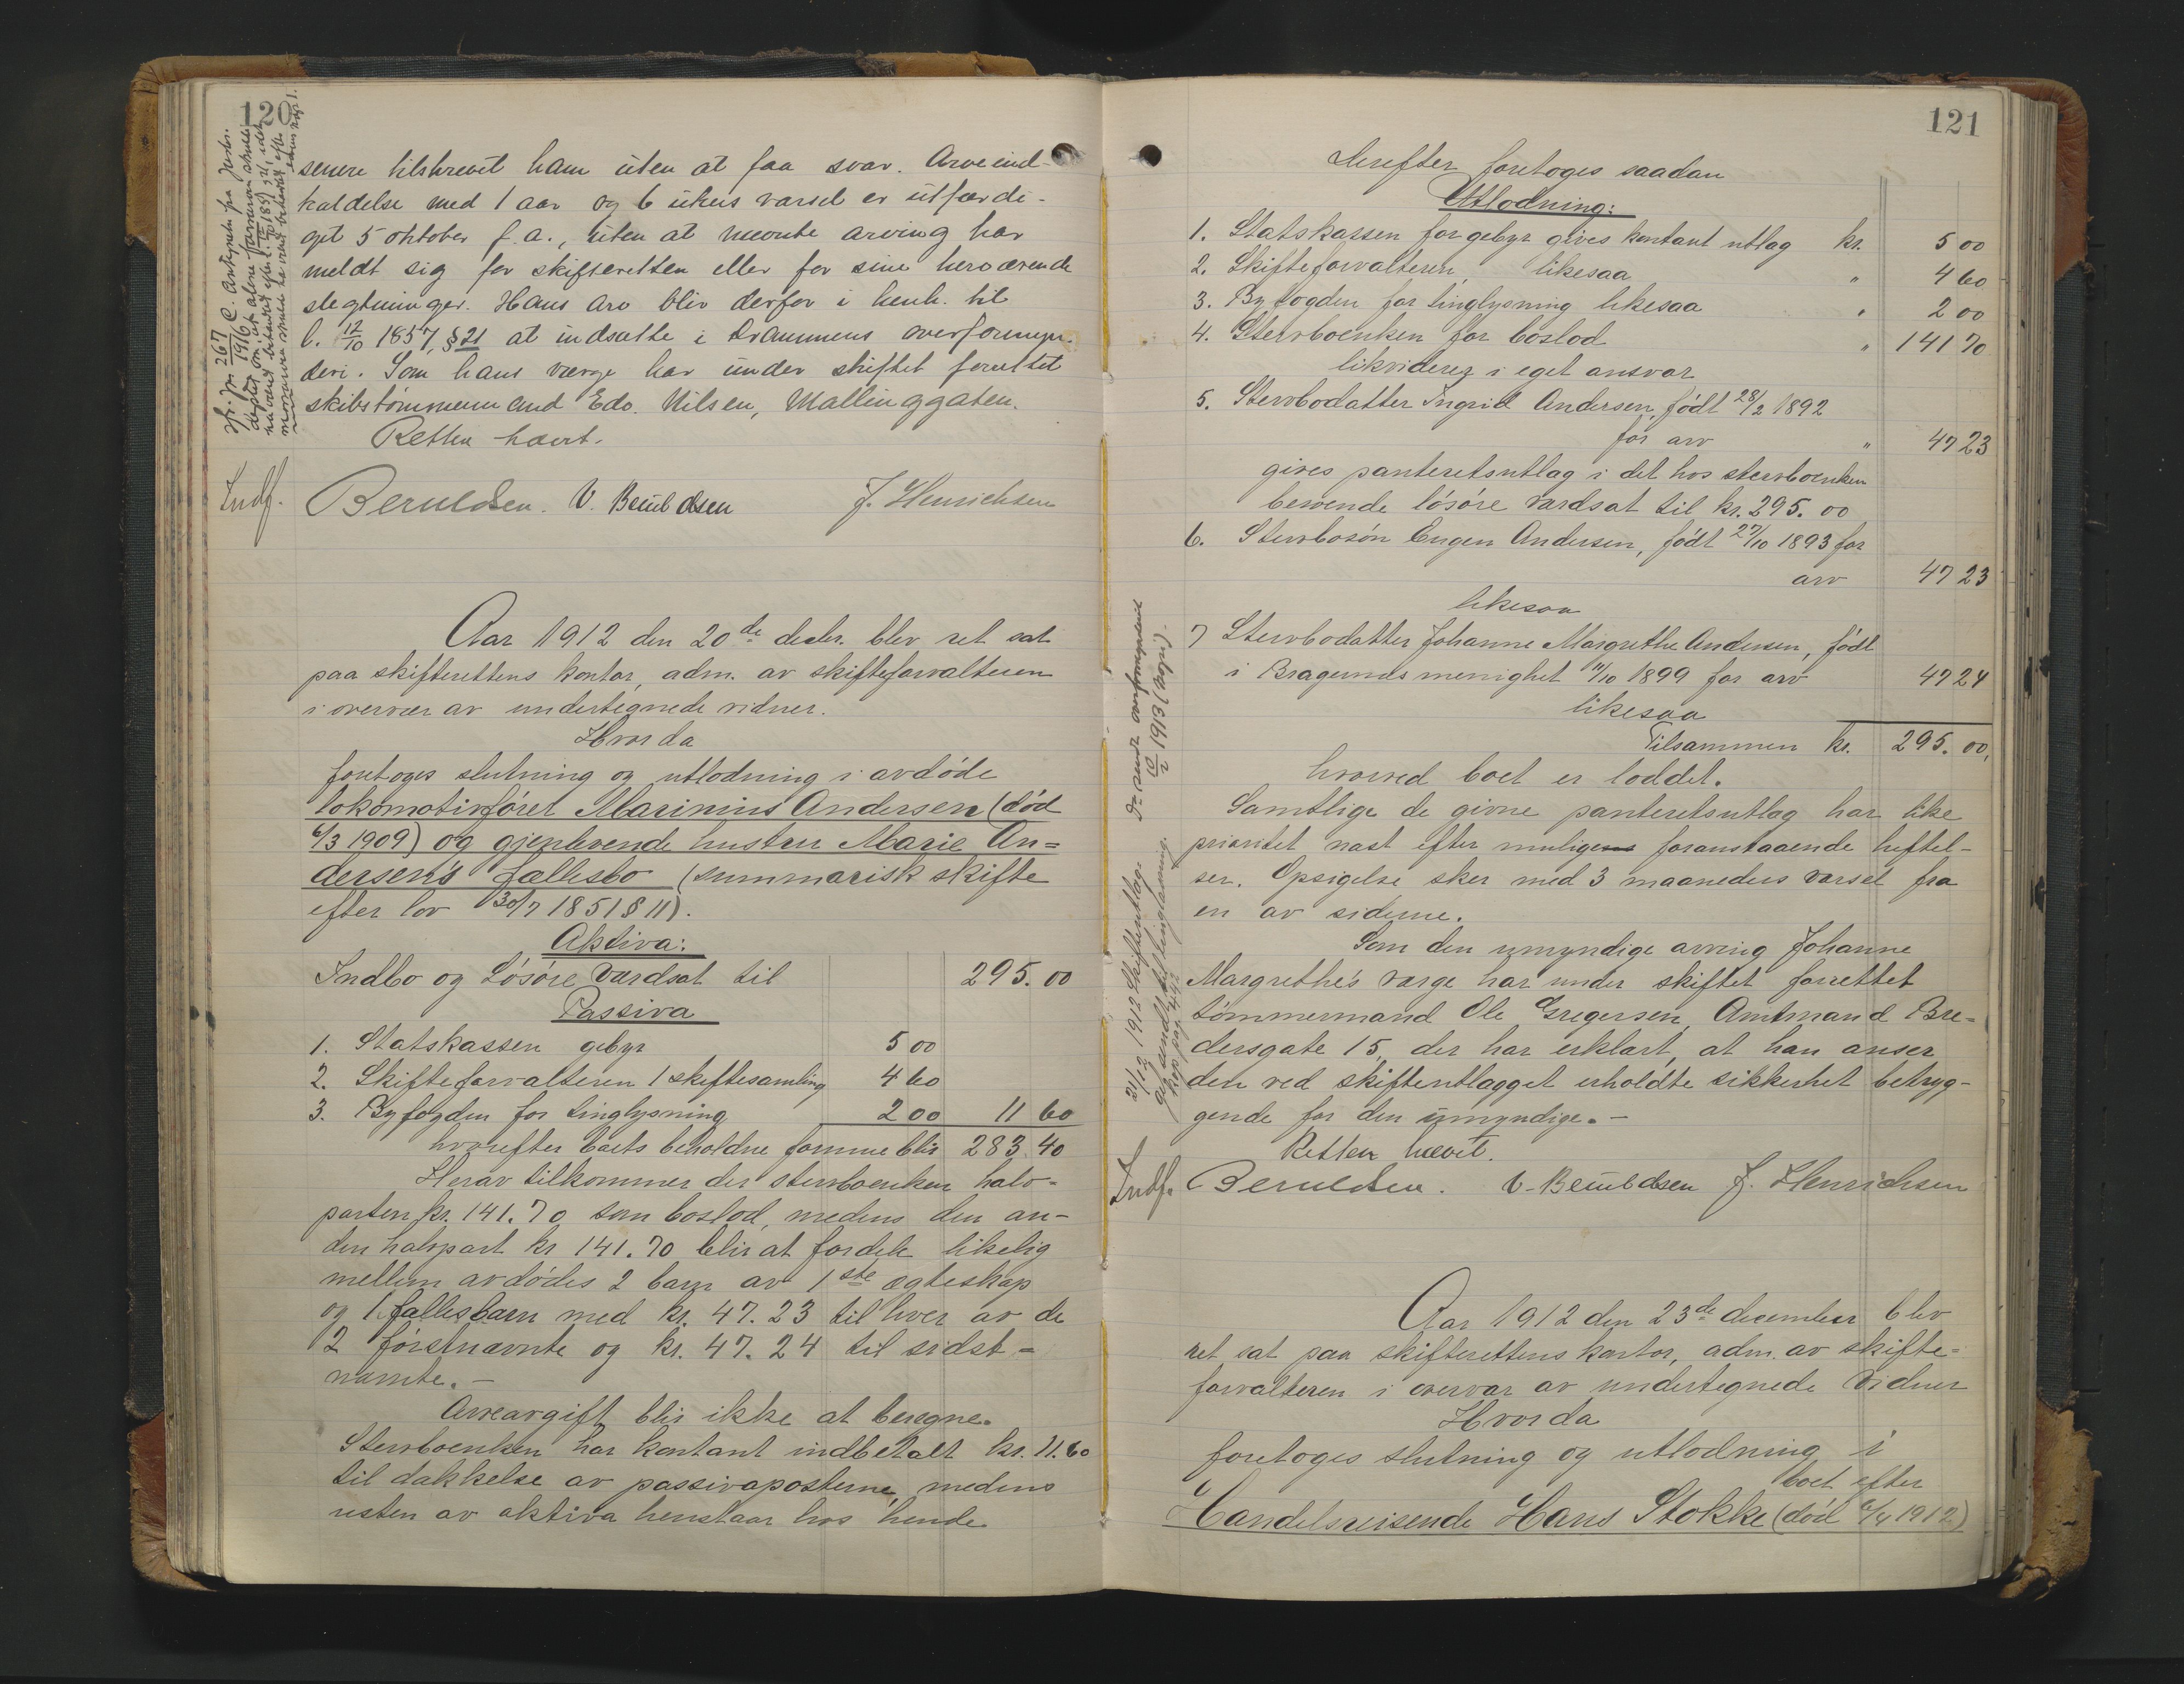 120
senere tilskrevet ham uten at faa svar. Arveind-
kaldelse med 1 aar og 6 ukers varsel er utfærdi-
get 5 oktober f.a., uten at nævnte arving har
meldt sig for skifteretten eller for sine herværende
slegtninger. Hans arv blir derfor i henh. til
l. 12/10 1857, § 21 at indsætte i Drammens overformyn-
deri. Som hans værge har under skiftet forrettet
skibstømmermand Edv. Nilsen, Mallinggaten.
Retten hævet.
Indf. Beruldsen. V. Beruldsen J. Henrichsen
Aar 1912 den 20de decbr. blev ret sat
paa skifterettens kontor, adm. av skifteforvalteren
i overvær av undertegnede vidner.
Hvorda
foretoges slutning og utlodning i avdøde
lokomotivføret Marinius Andersen (død
6/3 1909) og gjenlevende hustru Marie An=
dersen's fællesbo (summarisk skifte
efter lov 30/7 1851 § 11).
Aktiva:
Indbo og Løsøre værdsat til 295.00
Passiva
1. Statskassen gebyr 5 00
2. Skifteforvalteren 1 skiftesamling 4 60
3. Byfogden for tinglysning 2 00 11 60
hvorefter boets beholdne formue blir 283.40
Herav tilkommer der stervboenken halv-
parten kr. 141.70 som boslod, medens den an-
den halvpart kr 141.70 blir at fordele likelig
mellem avdødes 2 barn av 1ste ægteskap
og 1 fællesbarn med kr. 47.23 til hver av de
2 førstnævnte og kr. 47.24 til sidst=
nævnte.-
Arveavgift blir ikke at beregne.
Stervboenken har kontant indbetalt kr. 11.60
til dækkelse av passivaposterne, medens
resten av aktiva henstaar hos hende
121
Derefter foretoges saadan
Utlodning:
1. Statskassen for gebyr gives kontant utlag kr. 5 00
2. Skifteforvalteren, likesaa " 4 60
3. Byfogden for tinglysning likesaa " 2 00
4. Stervboenken for boslod " 141 70
likviderez i eget ansvar
5. Stervbodatter Ingrid Andersen, født 28/2 1892
for arv " 47 23
gives panteretsutlag i det hos stervboenken
beroende løsøre værdsat til kr. 295.00
6. Stervbosøn Eugen Andersen, født 27/10 1893 for
arv 47 23
likesaa
7 Stervbodatter Johanne Margrethe Andersen, født
i Bragernes menighet 11/10 1899 for arv 47 24
likesaa
Tilsammen kr. 295.00,
hvorved boet er loddet.
Samtlige de givne panteretsutlag har like
prioritet næst efter mulige foranstaaende heftel-
ser. Opsigelse sker med 3 maaneders varsel fra
en av siderne.
Som den umyndige arving Johanne
Margrethe's værge har under skiftet forrettet
tømmermand Ole Gregersen, Amtmand Bre=
dersgate 15, der har erklært, at han anser
den ved skifteutlægget erholdte sikkerhet betryg-
gende for den umyndige.-
Retten hævet.
Indf. Beruldsen. V. Beruldsen J. Henrichsen
Aar 1912 den 23de december blev
ret sat paa skifterettens kontor, adm. av skifte=
forvalteren i overvær av undertegnede vidner
Hvorda
foretoges slutning og utlodning i
boet efter
Handelsreisende Hans Stokke (død 6/4 1912)